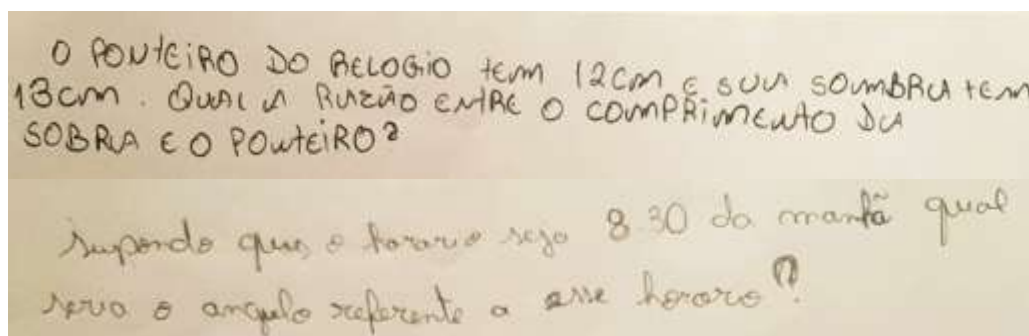 O PONTEIRO DO RELOGIO tEM 12CM E SUA SOMBRA tEM
13CM. QUAL A RAZÃO ENTRE O COMPRIMENTO DA
SOBRA E O PONTEIRO?
Supondo que o horario seja 8:30 da manhã qual
seria o angulo referente a esse horaro?